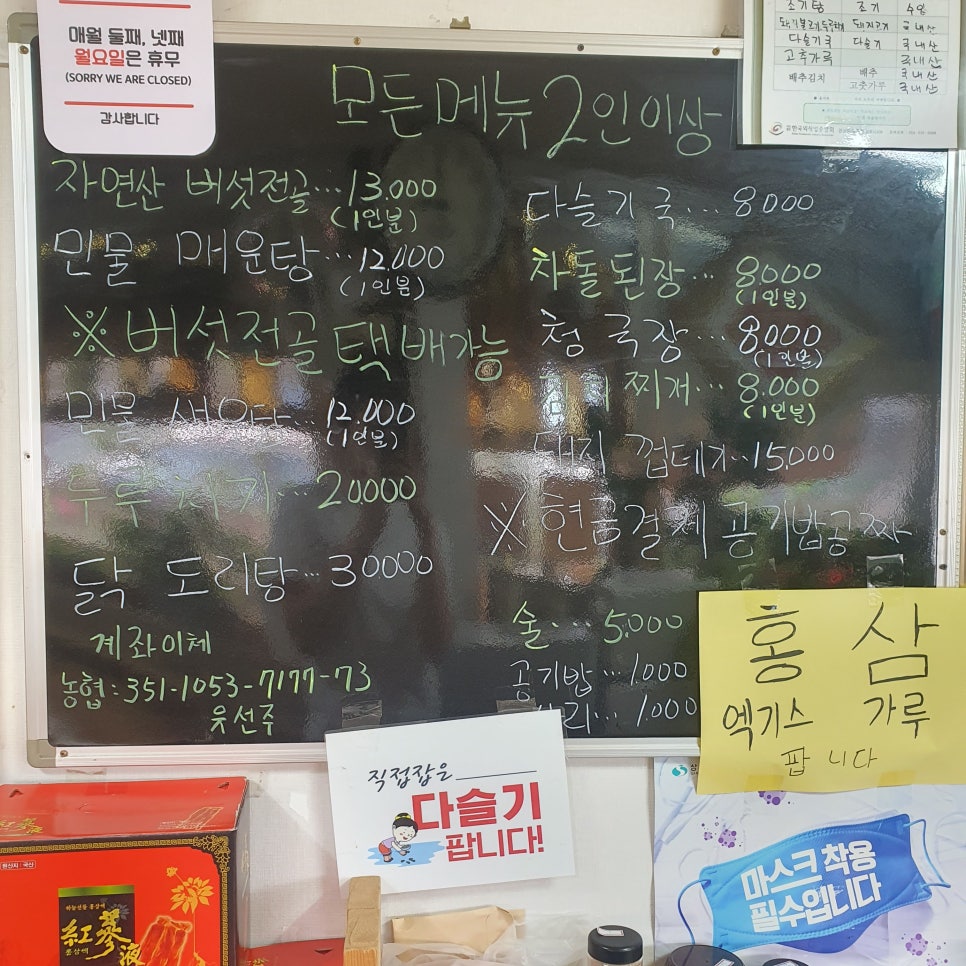 매월 둘째, 넷째
월요일은 휴무
(SORRY WE ARE CLOSED)
감사합니다
모든메뉴 2인이상
자연산 버섯전골...13.000
(1인분)
민물 매운탕...12.000
(1인분)
※버섯전골 택배가능
민물 새우탕...12.000
(1인분)
두루치기...20.000
닭도리탕...30000
계좌이체
농협:351-1053-7177-73
유선주
다슬기국...8000
차돌된장...8.000
(1인분)
청국장...8000
(1인분)
찌개...8.000
(1인분)
돼지 껍데기..15.000
※현금결제 공기밥공짜
술....5.000
공기밥...1000
사리...1.000
조기탕 조기
돼지고기 국내산
다슬기국 다슬기 국내산
고추가루 국내산
배추김치 배추 국내산
고춧가루 국내산
홍삼
엑기스 가루
팝니다
직접잡은
다슬기
팝니다!
마스크 착용
필수입니다
원산지 : 국산
홍삼액
紅蔘液